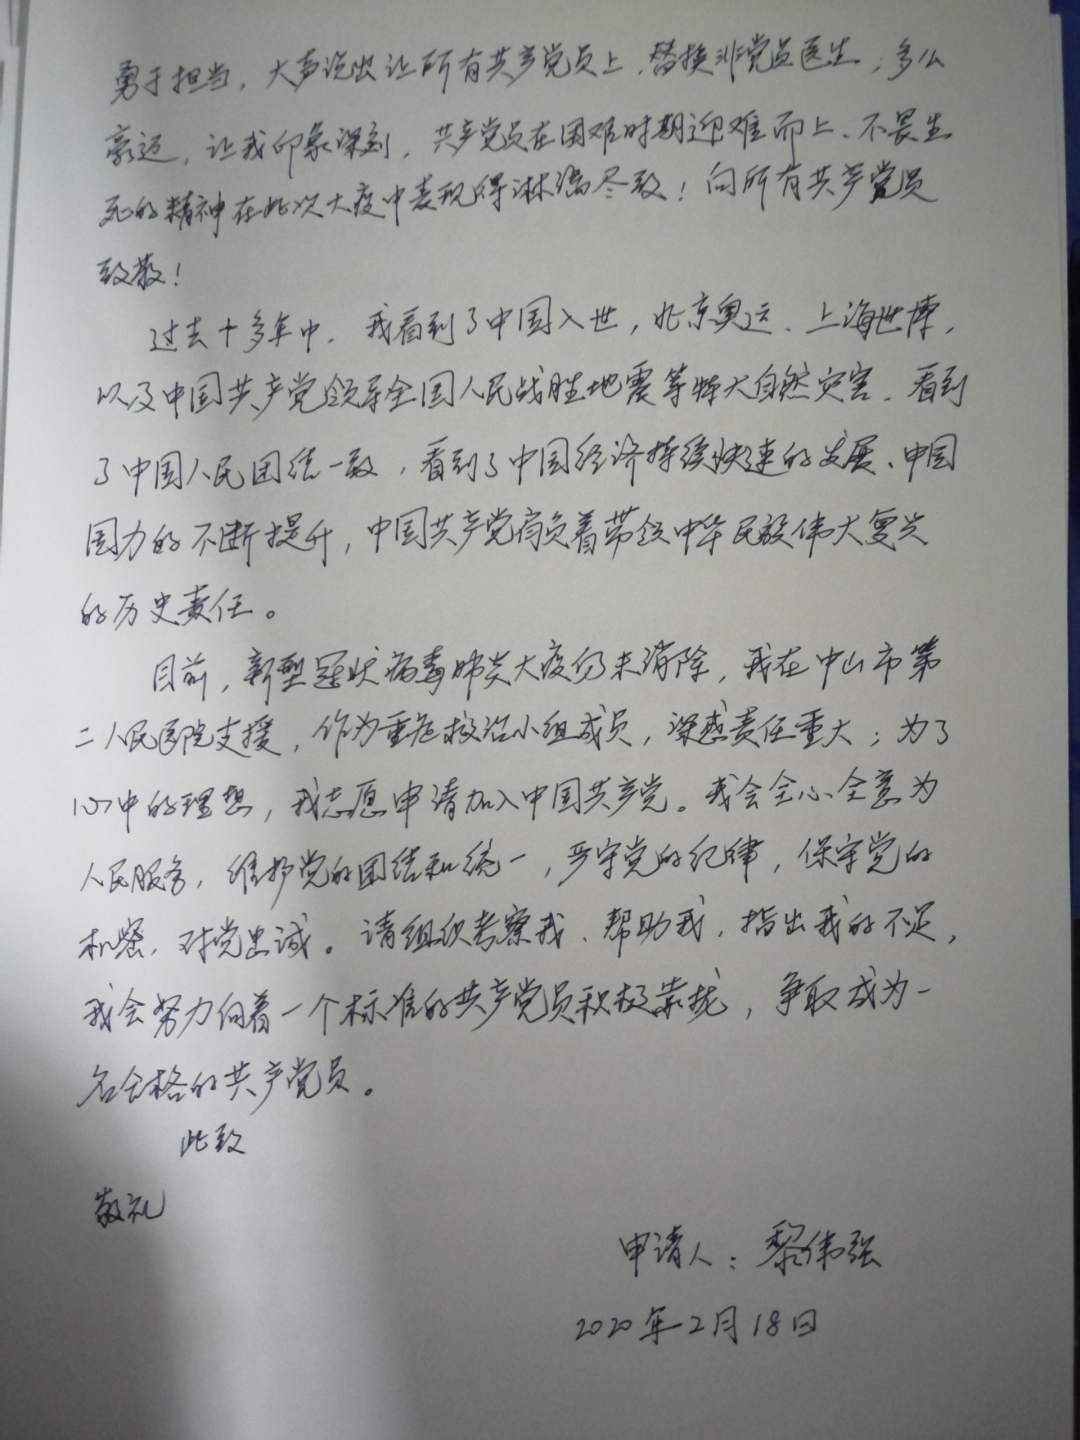 勇于担当，大声说出让所有共产党员上，替换非党员医生；多么
豪迈，让我印象深刻，共产党员在困难时期迎难而上、不畏生
死的精神在此次大疫中表现得淋漓尽致！向所有共产党员
致敬！
过去十多年中，我看到了中国入世，北京奥运、上海世博，
以及中国共产党领导全国人民战胜地震等特大自然灾害，看到
了中国人民团结一致，看到了中国经济持续快速的发展、中国
国力的不断提升，中国共产党肩负着带领中华民族伟大复兴
的历史责任。
目前，新型冠状病毒肺炎大疫仍未消除，我在中山市第
二人民医院支援，作为重症救治小组成员，深感责任重大；为了
心中的理想，我志愿申请加入中国共产党。我会全心全意为
人民服务，维护党的团结和统一，严守党的纪律，保守党的
机密，对党忠诚。请组织考察我、帮助我，指出我的不足，
我会努力向着一个标准的共产党员积极靠拢，争取成为一
名合格的共产党员。
此致
敬礼
申请人：黎伟强
2020年2月18日